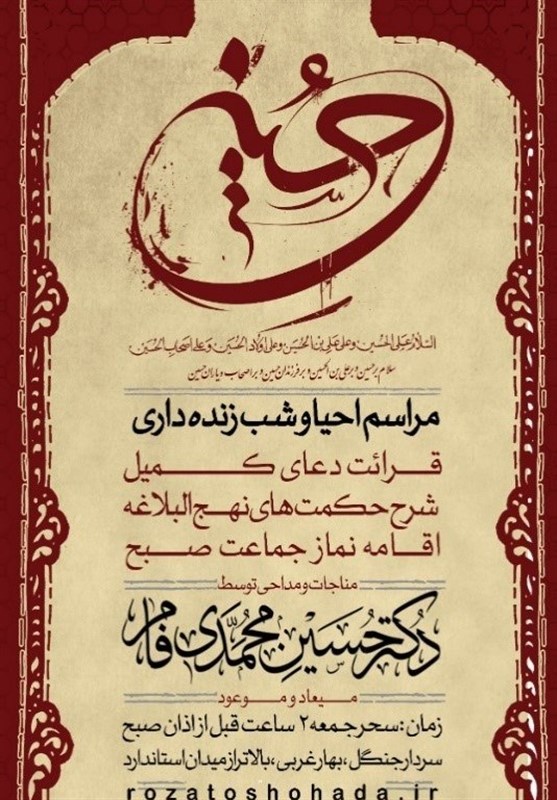 حسین
السلام علی الحسین و علی علی بن الحسین و علی اولاد الحسین و علی اصحاب الحسین
سلام بر حسین و بر علی بن الحسین و بر فرزندان حسین و بر اصحاب و یاران حسین
مراسم احیا و شب زنده داری
قرائت دعای کمیل
شرح حکمت‌های نهج البلاغه
اقامه نماز جماعت صبح
مناجات و مداحی توسط
دکتر حسین محمدی فام
میعاد و موعود
زمان: سحر جمعه ۲ ساعت قبل از اذان صبح
سردار جنگل، بهار غربی، بالاتر از میدان استاندارد
rozatoshohada.ir